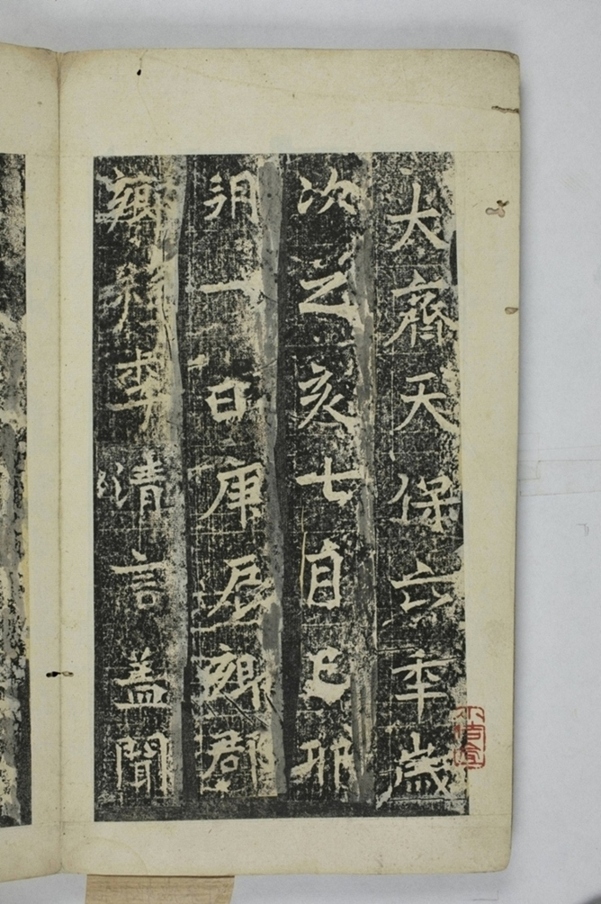 大齊天保六年歲
次乙亥七月己卯
朔一日庚辰鄉郡
鄉縣李清言盖聞